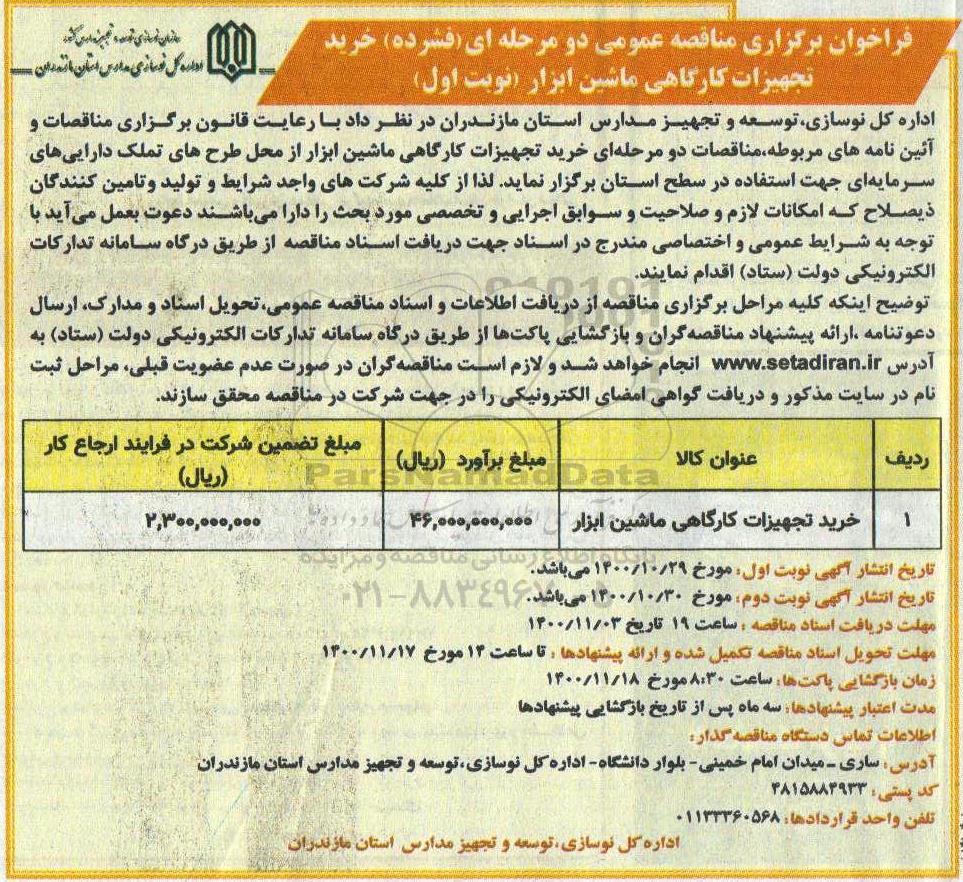 فراخوان برگزاری مناقصه عمومی دو مرحله ای(فشرده) خرید
تجهیزات کارگاهی ماشین ابزار (نوبت اول)
سازمان نوسازی، توسعه و تجهیز مدارس کشور
اداره کل نوسازی مدارس استان مازندران
اداره کل نوسازی،توسعه و تجهیز مدارس استان مازندران در نظر داد با رعایت قانون برگزاری مناقصات و
آئین نامه های مربوطه،مناقصات دو مرحله‌ای خرید تجهیزات کارگاهی ماشین ابزار از محل طرح های تملک دارایی‌های
سرمایه‌ای جهت استفاده در سطح استان برگزار نماید. لذا از کلیه شرکت های واجد شرایط و تولید وتامین کنندگان
ذیصلاح که امکانات لازم و صلاحیت و سوابق اجرایی و تخصصی مورد بحث را دارا می‌باشند دعوت بعمل می‌آید با
توجه به شرایط عمومی و اختصاصی مندرج در اسناد جهت دریافت اسناد مناقصه از طریق درگاه سامانه تدارکات
الکترونیکی دولت (ستاد) اقدام نمایند.
توضیح اینکه کلیه مراحل برگزاری مناقصه از دریافت اطلاعات و اسناد مناقصه عمومی،تحویل اسناد و مدارک، ارسال
دعوتنامه ،ارائه پیشنهاد مناقصه‌گران و بازگشایی پاکت‌ها از طریق درگاه سامانه تدارکات الکترونیکی دولت (ستاد) به
آدرس www.setadiran.ir انجام خواهد شد و لازم است مناقصه‌گران در صورت عدم عضویت قبلی، مراحل ثبت
نام در سایت مذکور و دریافت گواهی امضای الکترونیکی را در جهت شرکت در مناقصه محقق سازند.
ردیف عنوان کالا مبلغ برآورد (ریال) مبلغ تضمین شرکت در فرایند ارجاع کار
(ریال)
۱ خرید تجهیزات کارگاهی ماشین ابزار ۴۶,۰۰۰,۰۰۰,۰۰۰ ۲,۳۰۰,۰۰۰,۰۰۰
ParsNamadData
پایگاه اطلاع رسانی مناقصه و مزایده
۰۲۱-۸۸۳۴۹۶۷۰-۵
تاریخ انتشار آگهی نوبت اول: مورخ ۱۴۰۰/۱۰/۲۹ می‌باشد.
تاریخ انتشار آگهی نوبت دوم: مورخ ۱۴۰۰/۱۰/۳۰ می‌باشد.
مهلت دریافت اسناد مناقصه : ساعت ۱۹ تاریخ ۱۴۰۰/۱۱/۰۳
مهلت تحویل اسناد مناقصه تکمیل شده و ارائه پیشنهادها : تا ساعت ۱۴ مورخ ۱۴۰۰/۱۱/۱۷
زمان بازگشایی پاکت‌ها: ساعت ۸:۳۰ مورخ ۱۴۰۰/۱۱/۱۸
مدت اعتبار پیشنهادها: سه ماه پس از تاریخ بازگشایی پیشنهادها
اطلاعات تماس دستگاه مناقصه گذار:
آدرس: ساری ـ میدان امام خمینی- بلوار دانشگاه- اداره کل نوسازی،توسعه و تجهیز مدارس استان مازندران
کد پستی: ۴۸۱۵۸۸۴۹۳۳
تلفن واحد قراردادها: ۰۱۱۳۳۳۶۰۵۶۸
اداره کل نوسازی، توسعه و تجهیز مدارس استان مازندران